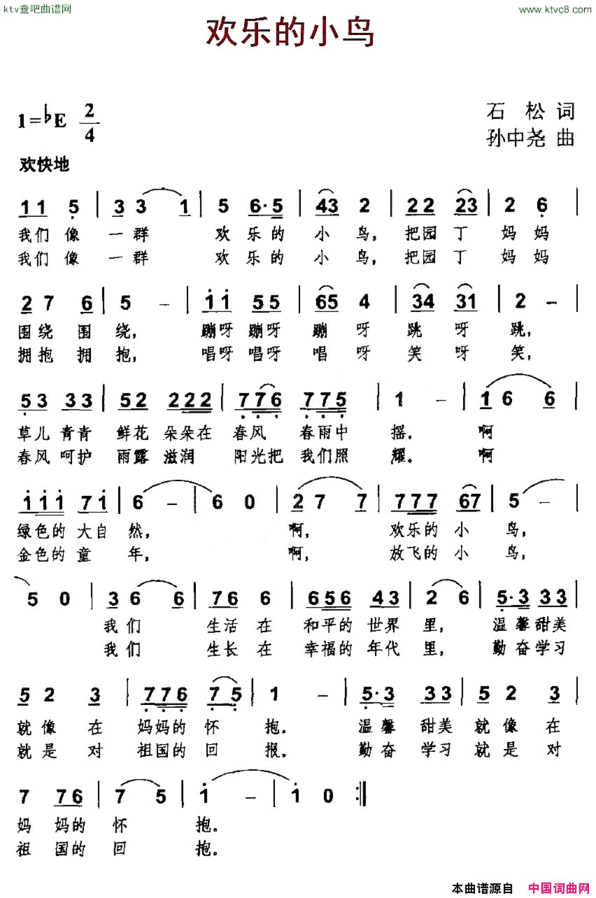 ktv查吧曲谱网
www.ktvc8.com
欢乐的小鸟
1=♭E 2/4
石 松 词
孙中尧 曲
欢快地
1 1 5 | 3 3 1 | 5 6·5 | 43 2 | 22 23 | 2 6 |
我们 像 一群 欢 乐的 小 鸟, 把园 丁 妈妈
我们 像 一群 欢 乐的 小 鸟, 把园 丁 妈妈
2 7 6 | 5 - | 11 55 | 65 4 | 34 31 | 2 - |
围绕 围 绕, 蹦呀 蹦呀 蹦 呀 跳 呀 跳,
拥抱 拥 抱, 唱呀 唱呀 唱 呀 笑 呀 笑,
53 33 | 52 222 | 776 775 | 1 - | 1 6 6 |
草儿 青青 鲜花 朵朵在 春风 春雨中 摇。 啊
春风 呵护 雨露 滋润 阳光把 我们照 耀。 啊
111 71 | 6 - | 6 0 | 2 7 7 | 777 67 | 5 - |
绿色的 大自 然, 啊, 欢乐的 小 鸟,
金色的 童 年, 啊, 放飞的 小 鸟,
5 0 | 3 6 6 | 76 6 | 656 43 | 2 6 | 5·3 33 |
我 们 生活 在 和平的 世界 里, 温馨 甜美
我 们 生长 在 幸福的 年代 里, 勤奋 学习
5 2 3 | 776 75 | 1 - | 5·3 33 | 5 2 3 |
就 像 在 妈妈的 怀 抱。 温馨 甜美 就 像 在
就 是 对 祖国的 回 报。 勤奋 学习 就 是 对
7 76 | 7 5 | 1 - | 1 0 :||
妈 妈的 怀 抱。
祖 国的 回 报。
本曲谱源自 中国词曲网